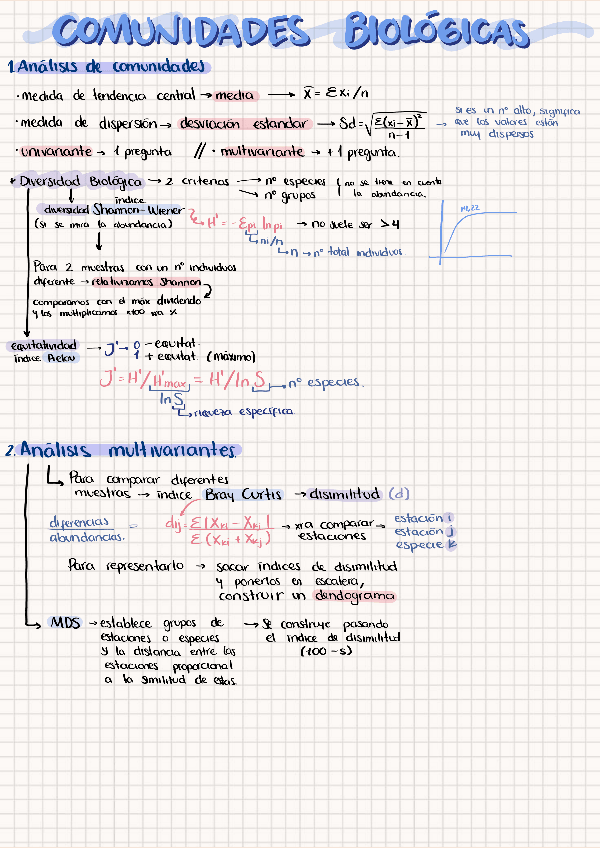 COMUNIDADES BIOLÓGICAS
1. Análisis de comunidades
· medida de tendencia central → media → x̄ = Σxi/n
· medida de dispersión → desviación estandar → Sd = √Σ(xi - x̄)²/n-1 → si es un nº alto, significa que los valores están muy dispersos
· univariante → 1 pregunta // · multivariante → +1 pregunta.
+ Diversidad Biológica → 2 criterios → nº especies
→ nº grupos
no se tiene en cuenta la abundancia.
índice
diversidad Shannon-Wiener
(si se mira la abundancia)
H' = -Σpi ln pi → no suele ser > 4
ni/n
n → nº total individuos
Para 2 muestras con un nº individuos
diferente → relativizamos Shannon
comparamos con el máx dividendo
y los multiplicamos ×100 xra %
equitatividad
índice Pielou
→ J' → 0 - equitat.
1 + equitat. (máximo)
J' = H'/H'max = H'/ln S → nº especies.
ln S
→ riqueza específica
2. Análisis multivariantes.
Para comparar diferentes
muestras → índice Bray Curtis → disimilitud (d)
diferencias
abundancias.
= dij = Σ|Xki - Xkj| / Σ(Xki + Xkj) → xra comparar estaciones → estación i
estación j
especie k
Para representarlo → sacar índices de disimilitud
y ponerlos en escalera,
construir un dendograma
MDS → establece grupos de
estaciones o especies
y la distancia entre las
estaciones proporcional
a la similitud de estas.
→ Se construye pasando
el índice de disimilitud
(100 - s)